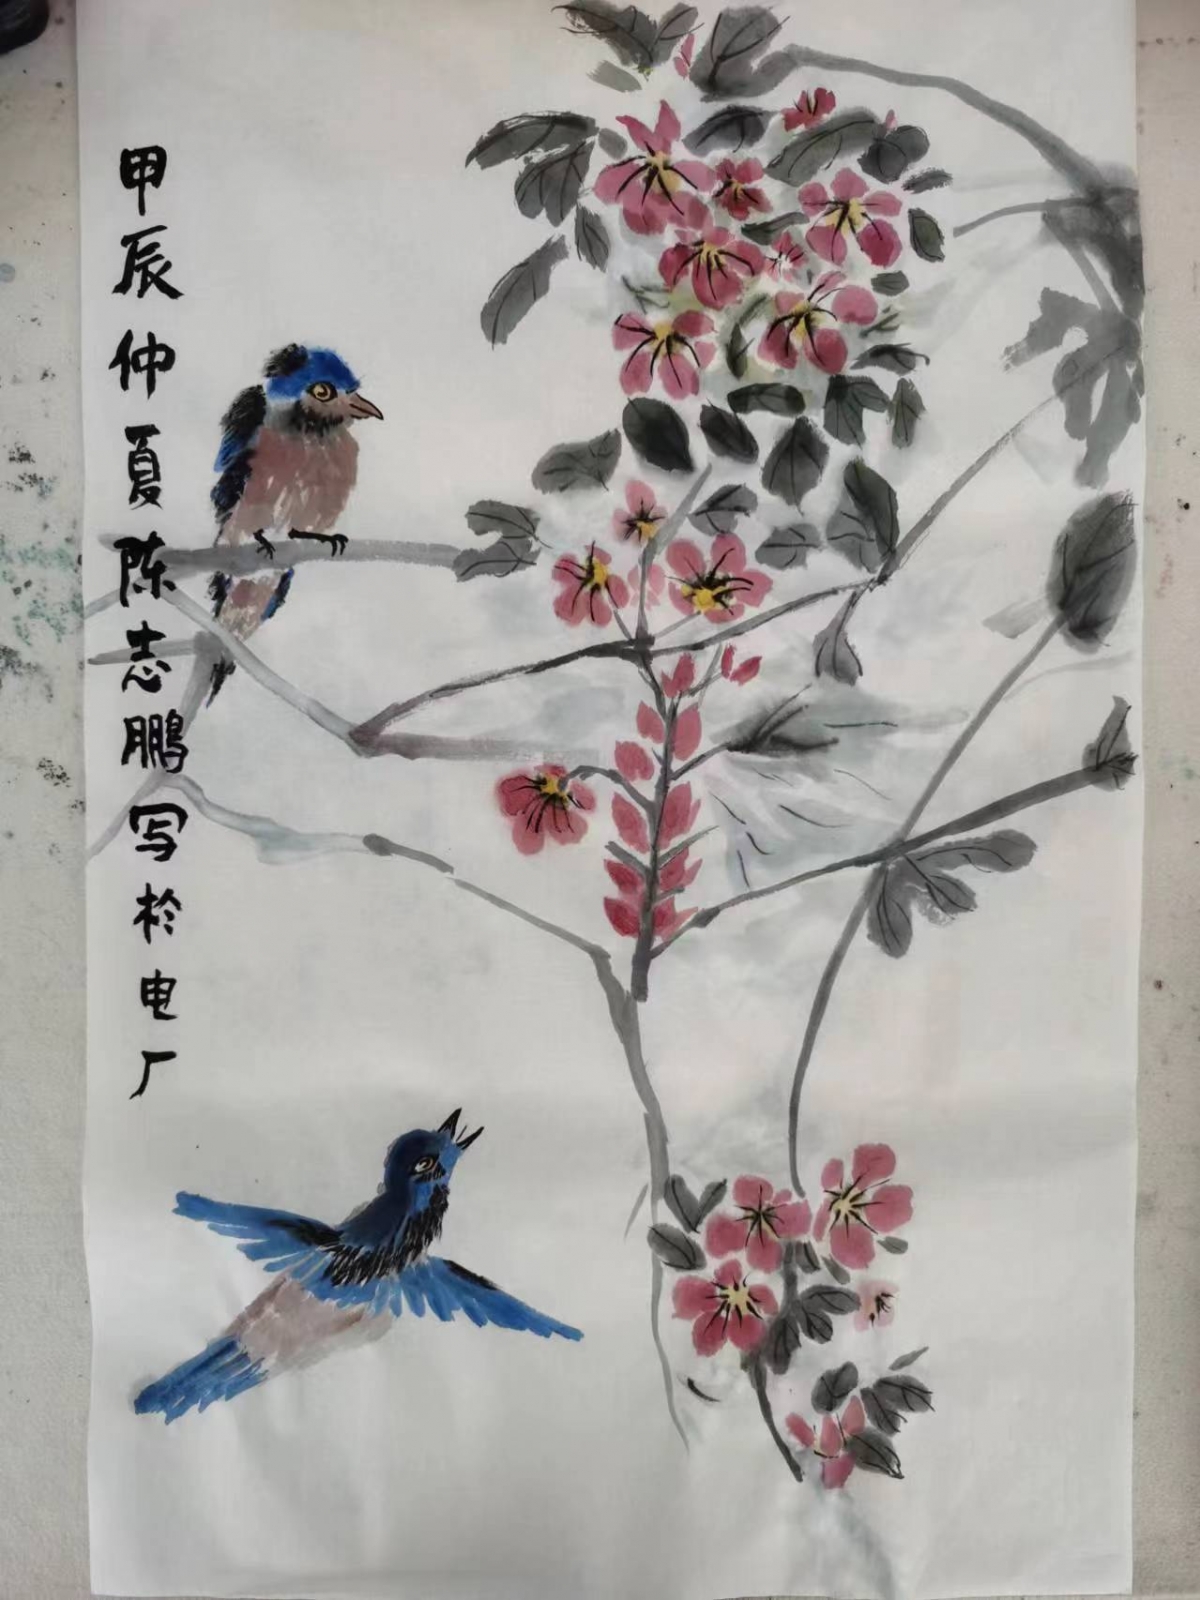 甲辰仲夏陈志鹏写於电厂